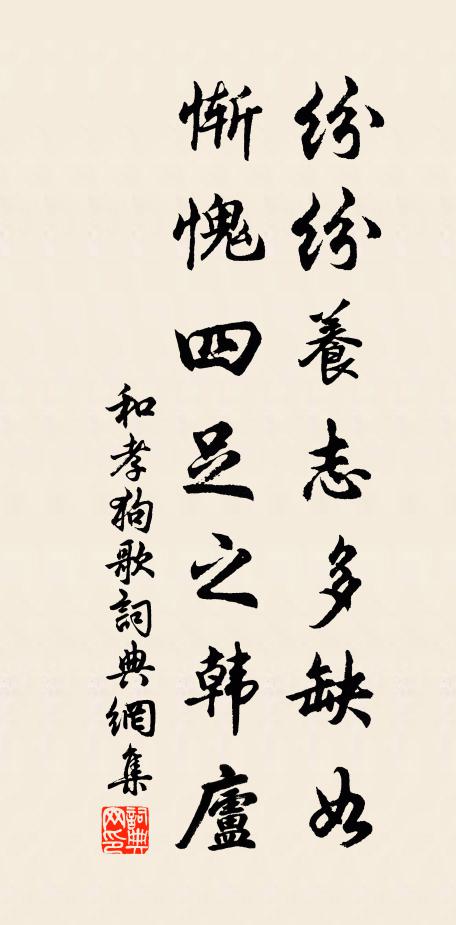 纷纷養志多缺如
慚愧四足之韩廬
和孝狗歌詞典網集
詞典网印